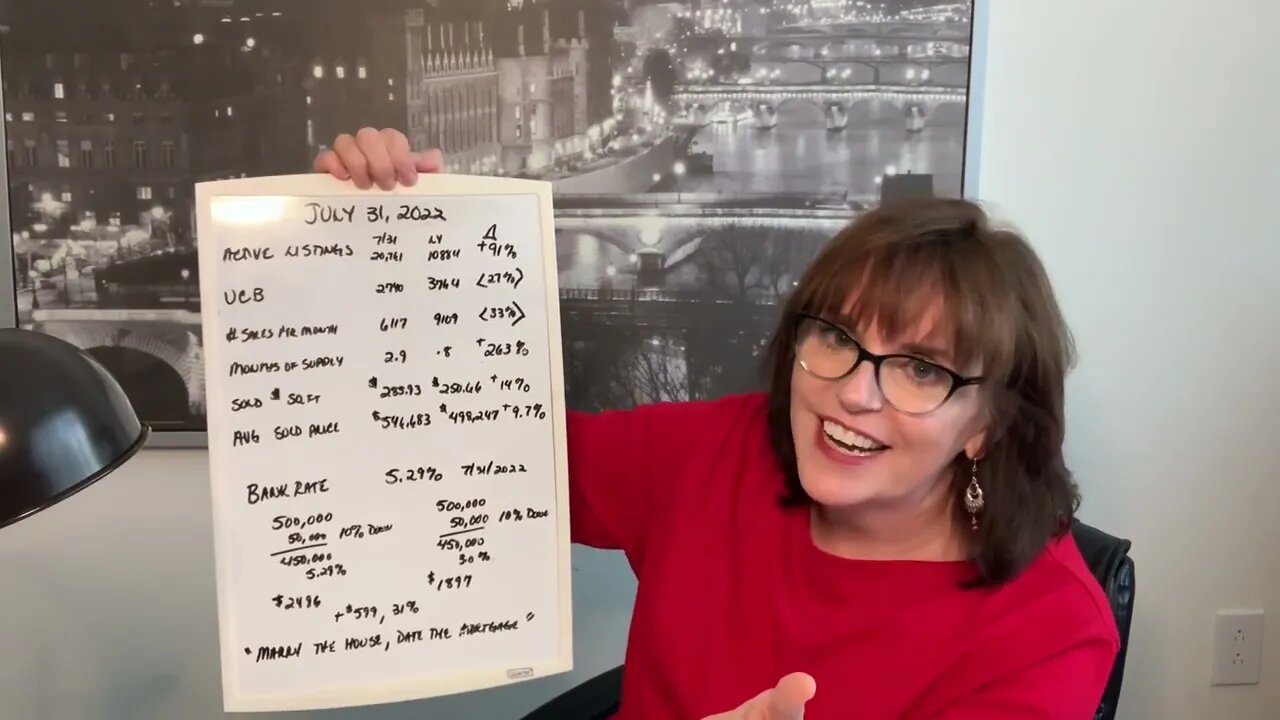 JULY 31, 2022
7/31 LY Δ
ACTIVE LISTINGS 20,761 10884 +91%
UCB 2790 3764 <27%>
# SALES PER MONTH 6117 9109 <33%>
MONTHS OF SUPPLY 2.9 .8 +263%
SOLD $ SQ.FT $285.93 $250.66 +14%
AVG SOLD PRICE $546,683 $498,247 +9.7%
BANK RATE 5.29% 7/31/2022
500,000 500,000
50,000 10% DOWN 50,000 10% DOWN
450,000 450,000
5.29% 30%
$2496 $1897
+$599, 31%
"MARRY THE HOUSE, DATE THE MORTGAGE"